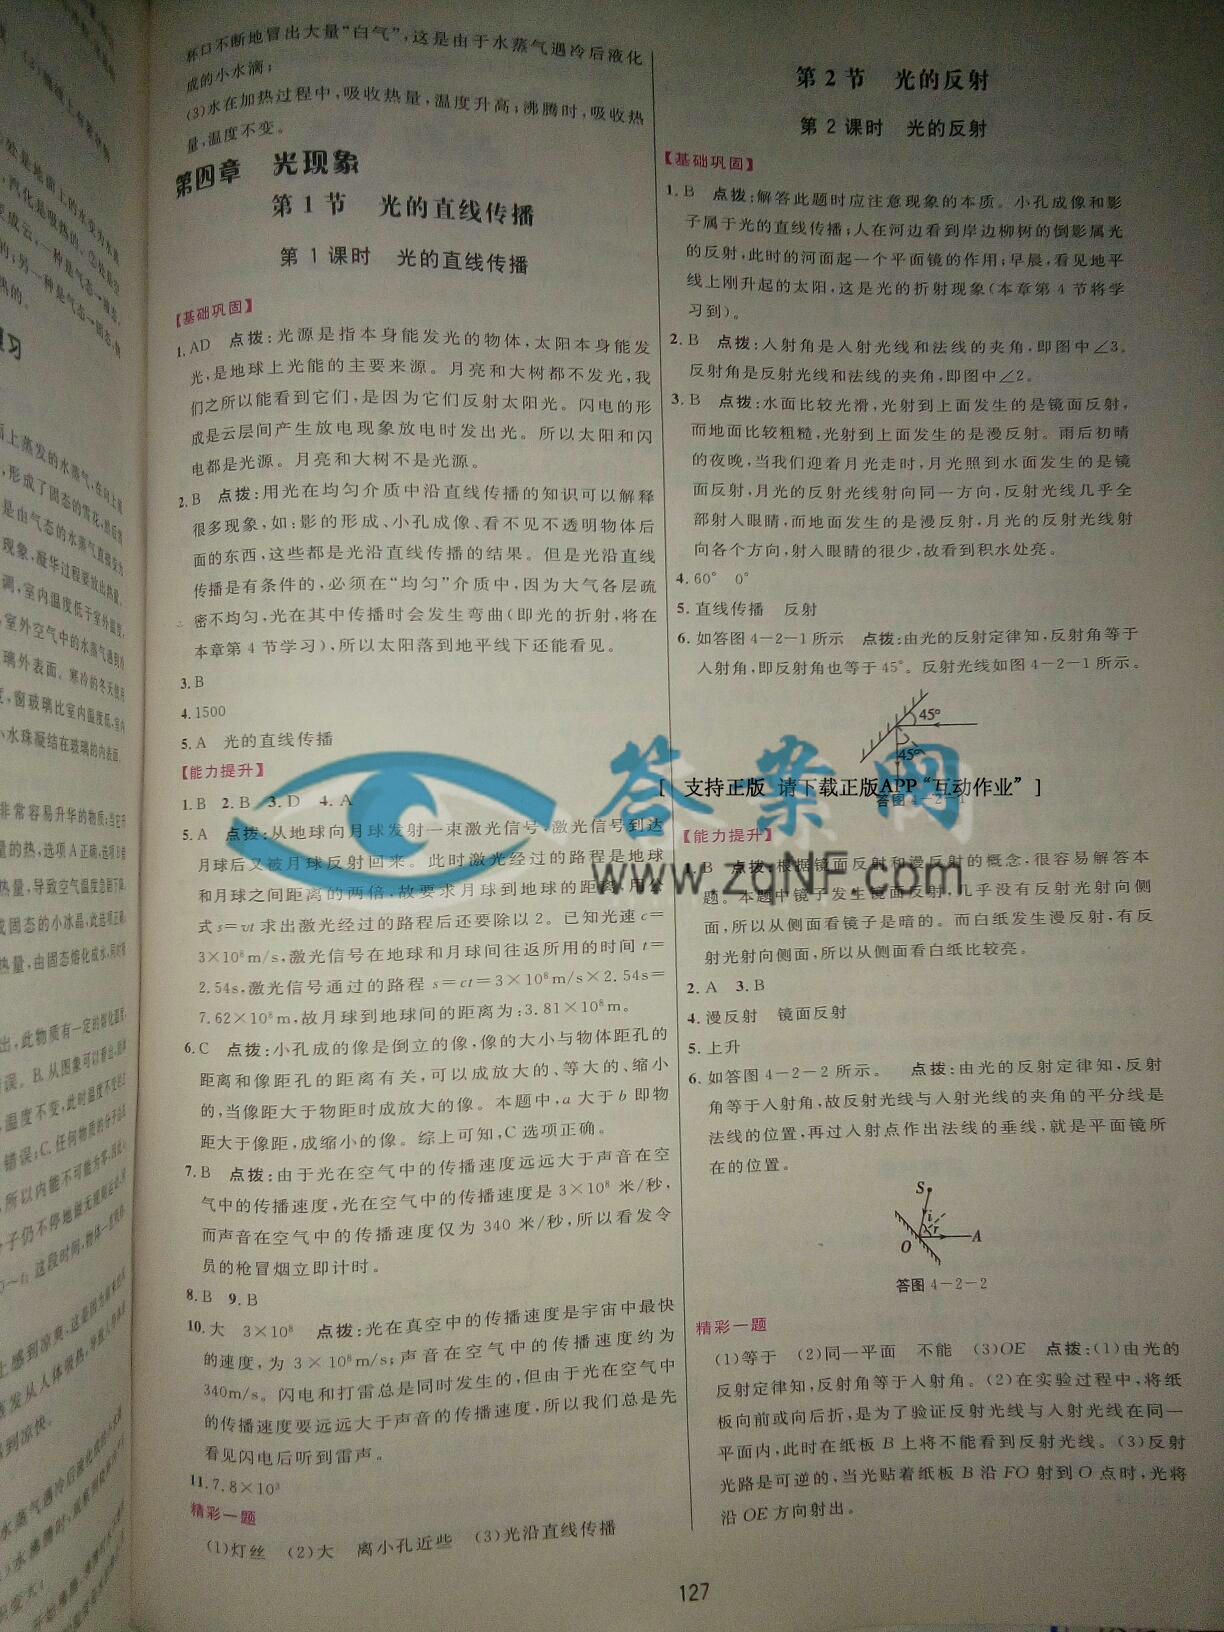 杯口不断地冒出大量“白气”,这是由于水蒸气遇冷后液化
成的小水滴;
(3)水在加热过程中,吸收热量,温度升高;沸腾时,吸收热
量,温度不变。
第四章 光现象
第1节 光的直线传播
第1课时 光的直线传播
【基础巩固】
1.AD 点拨:光源是指本身能发光的物体,太阳本身能发
光,是地球上光能的主要来源。月亮和大树都不发光,我
们之所以能看到它们,是因为它们反射太阳光。闪电的形
成是云层间产生放电现象放电时发出光。所以太阳和闪
电都是光源。月亮和大树不是光源。
2.B 点拨:用光在均匀介质中沿直线传播的知识可以解释
很多现象,如:影的形成、小孔成像、看不见不透明物体后
面的东西,这些都是光沿直线传播的结果。但是光沿直线
传播是有条件的,必须在“均匀”介质中,因为大气各层疏
密不均匀,光在其中传播时会发生弯曲(即光的折射,将在
本章第4节学习),所以太阳落到地平线下还能看见。
3.B
4.1500
5.A 光的直线传播
【能力提升】
1.B 2.B 3.D 4.A
5.A 点拨:从地球向月球发射一束激光信号,激光信号到达
月球后又被月球反射回来。此时激光经过的路程是地球
和月球之间距离的两倍,故要求月球到地球的距离,用公
式s=vt求出激光经过的路程后还要除以2。已知光速c=
3×10⁸m/s,激光信号在地球和月球间往返所用的时间t=
2.54s,激光信号通过的路程s=ct=3×10⁸m/s×2.54s=
7.62×10⁸m,故月球到地球间的距离为:3.81×10⁸m。
6.C 点拨:小孔成的像是倒立的像,像的大小与物体距孔的
距离和像距孔的距离有关,可以成放大的、等大的、缩小
的,当像距大于物距时成放大的像。本题中,a大于b即物
距大于像距,成缩小的像。综上可知,C选项正确。
7.B 点拨:由于光在空气中的传播速度远远大于声音在空
气中的传播速度,光在空气中的传播速度是3×10⁸米/秒,
而声音在空气中的传播速度仅为340米/秒,所以看发令
员的枪冒烟立即计时。
8.B 9.B
10.大 3×10⁸ 点拨:光在真空中的传播速度是宇宙中最快
的速度,为3×10⁸m/s;声音在空气中的传播速度约为
340m/s。闪电和打雷总是同时发生的,但由于光在空气中
的传播速度要远远大于声音的传播速度,所以我们总是先
看见闪电后听到雷声。
11.7.8×10³
精彩一题
(1)灯丝 (2)大 离小孔近些 (3)光沿直线传播
第2节 光的反射
第2课时 光的反射
【基础巩固】
1.B 点拨:解答此题时应注意现象的本质。小孔成像和影
子属于光的直线传播;人在河边看到岸边柳树的倒影属光
的反射,此时的河面起一个平面镜的作用;早晨,看见地平
线上刚升起的太阳,这是光的折射现象(本章第4节将学
习到)。
2.B 点拨:入射角是入射光线和法线的夹角,即图中∠3。
反射角是反射光线和法线的夹角,即图中∠2。
3.B 点拨:水面比较光滑,光射到上面发生的是镜面反射,
而地面比较粗糙,光射到上面发生的是漫反射。雨后初晴
的夜晚,当我们迎着月光走时,月光照到水面发生的是镜
面反射,月光的反射光线射向同一方向,反射光线几乎全
部射入眼睛,而地面发生的是漫反射,月光的反射光线射
向各个方向,射入眼睛的很少,故看到积水处亮。
4.60° 0°
5.直线传播 反射
6.如答图4-2-1所示 点拨:由光的反射定律知,反射角等于
入射角,即反射角也等于45°。反射光线如图4-2-1所示。
45°
45°
答案网
[ 支持正版 请下载正版APP“互动作业” ]
答图4-2-1
www.zqNF.com
【能力提升】
1.B 点拨:根据镜面反射和漫反射的概念,很容易解答本
题。本题中镜子发生镜面反射,几乎没有反射光射向侧
面,所以从侧面看镜子是暗的。而白纸发生漫反射,有反
射光射向侧面,所以从侧面看白纸比较亮。
2.A 3.B
4.漫反射 镜面反射
5.上升
6.如答图4-2-2所示。 点拨:由光的反射定律知,反射
角等于入射角,故反射光线与入射光线的夹角的平分线是
法线的位置,再过入射点作出法线的垂线,就是平面镜所
在的位置。
S
i
r
O
A
答图4-2-2
精彩一题
(1)等于 (2)同一平面 不能 (3)OE 点拨:(1)由光的
反射定律知,反射角等于入射角。(2)在实验过程中,将纸
板向前或向后折,是为了验证反射光线与入射光线在同一
平面内,此时在纸板B上将不能看到反射光线。(3)反射
光路是可逆的,当光贴着纸板B沿FO射到O点时,光将
沿OE方向射出。
127